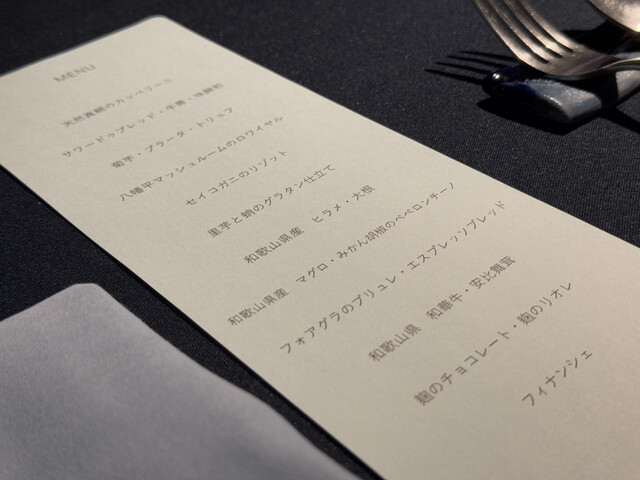 MENU
天然真鯛のカッペリーニ
サワードゥブレッド・牛醤・味醂粕
菊芋・ブラータ・トリュフ
八幡平マッシュルームのロワイヤル
セイコガニのリゾット
里芋と蛸のグラタン仕立て
和歌山県産 ヒラメ・大根
和歌山県産 マグロ・みかん胡椒のペペロンチーノ
フォアグラのブリュレ・エスプレッソブレッド
和歌山県 和華牛・安比舞茸
麹のチョコレート・麹のリオレ
フィナンシェ